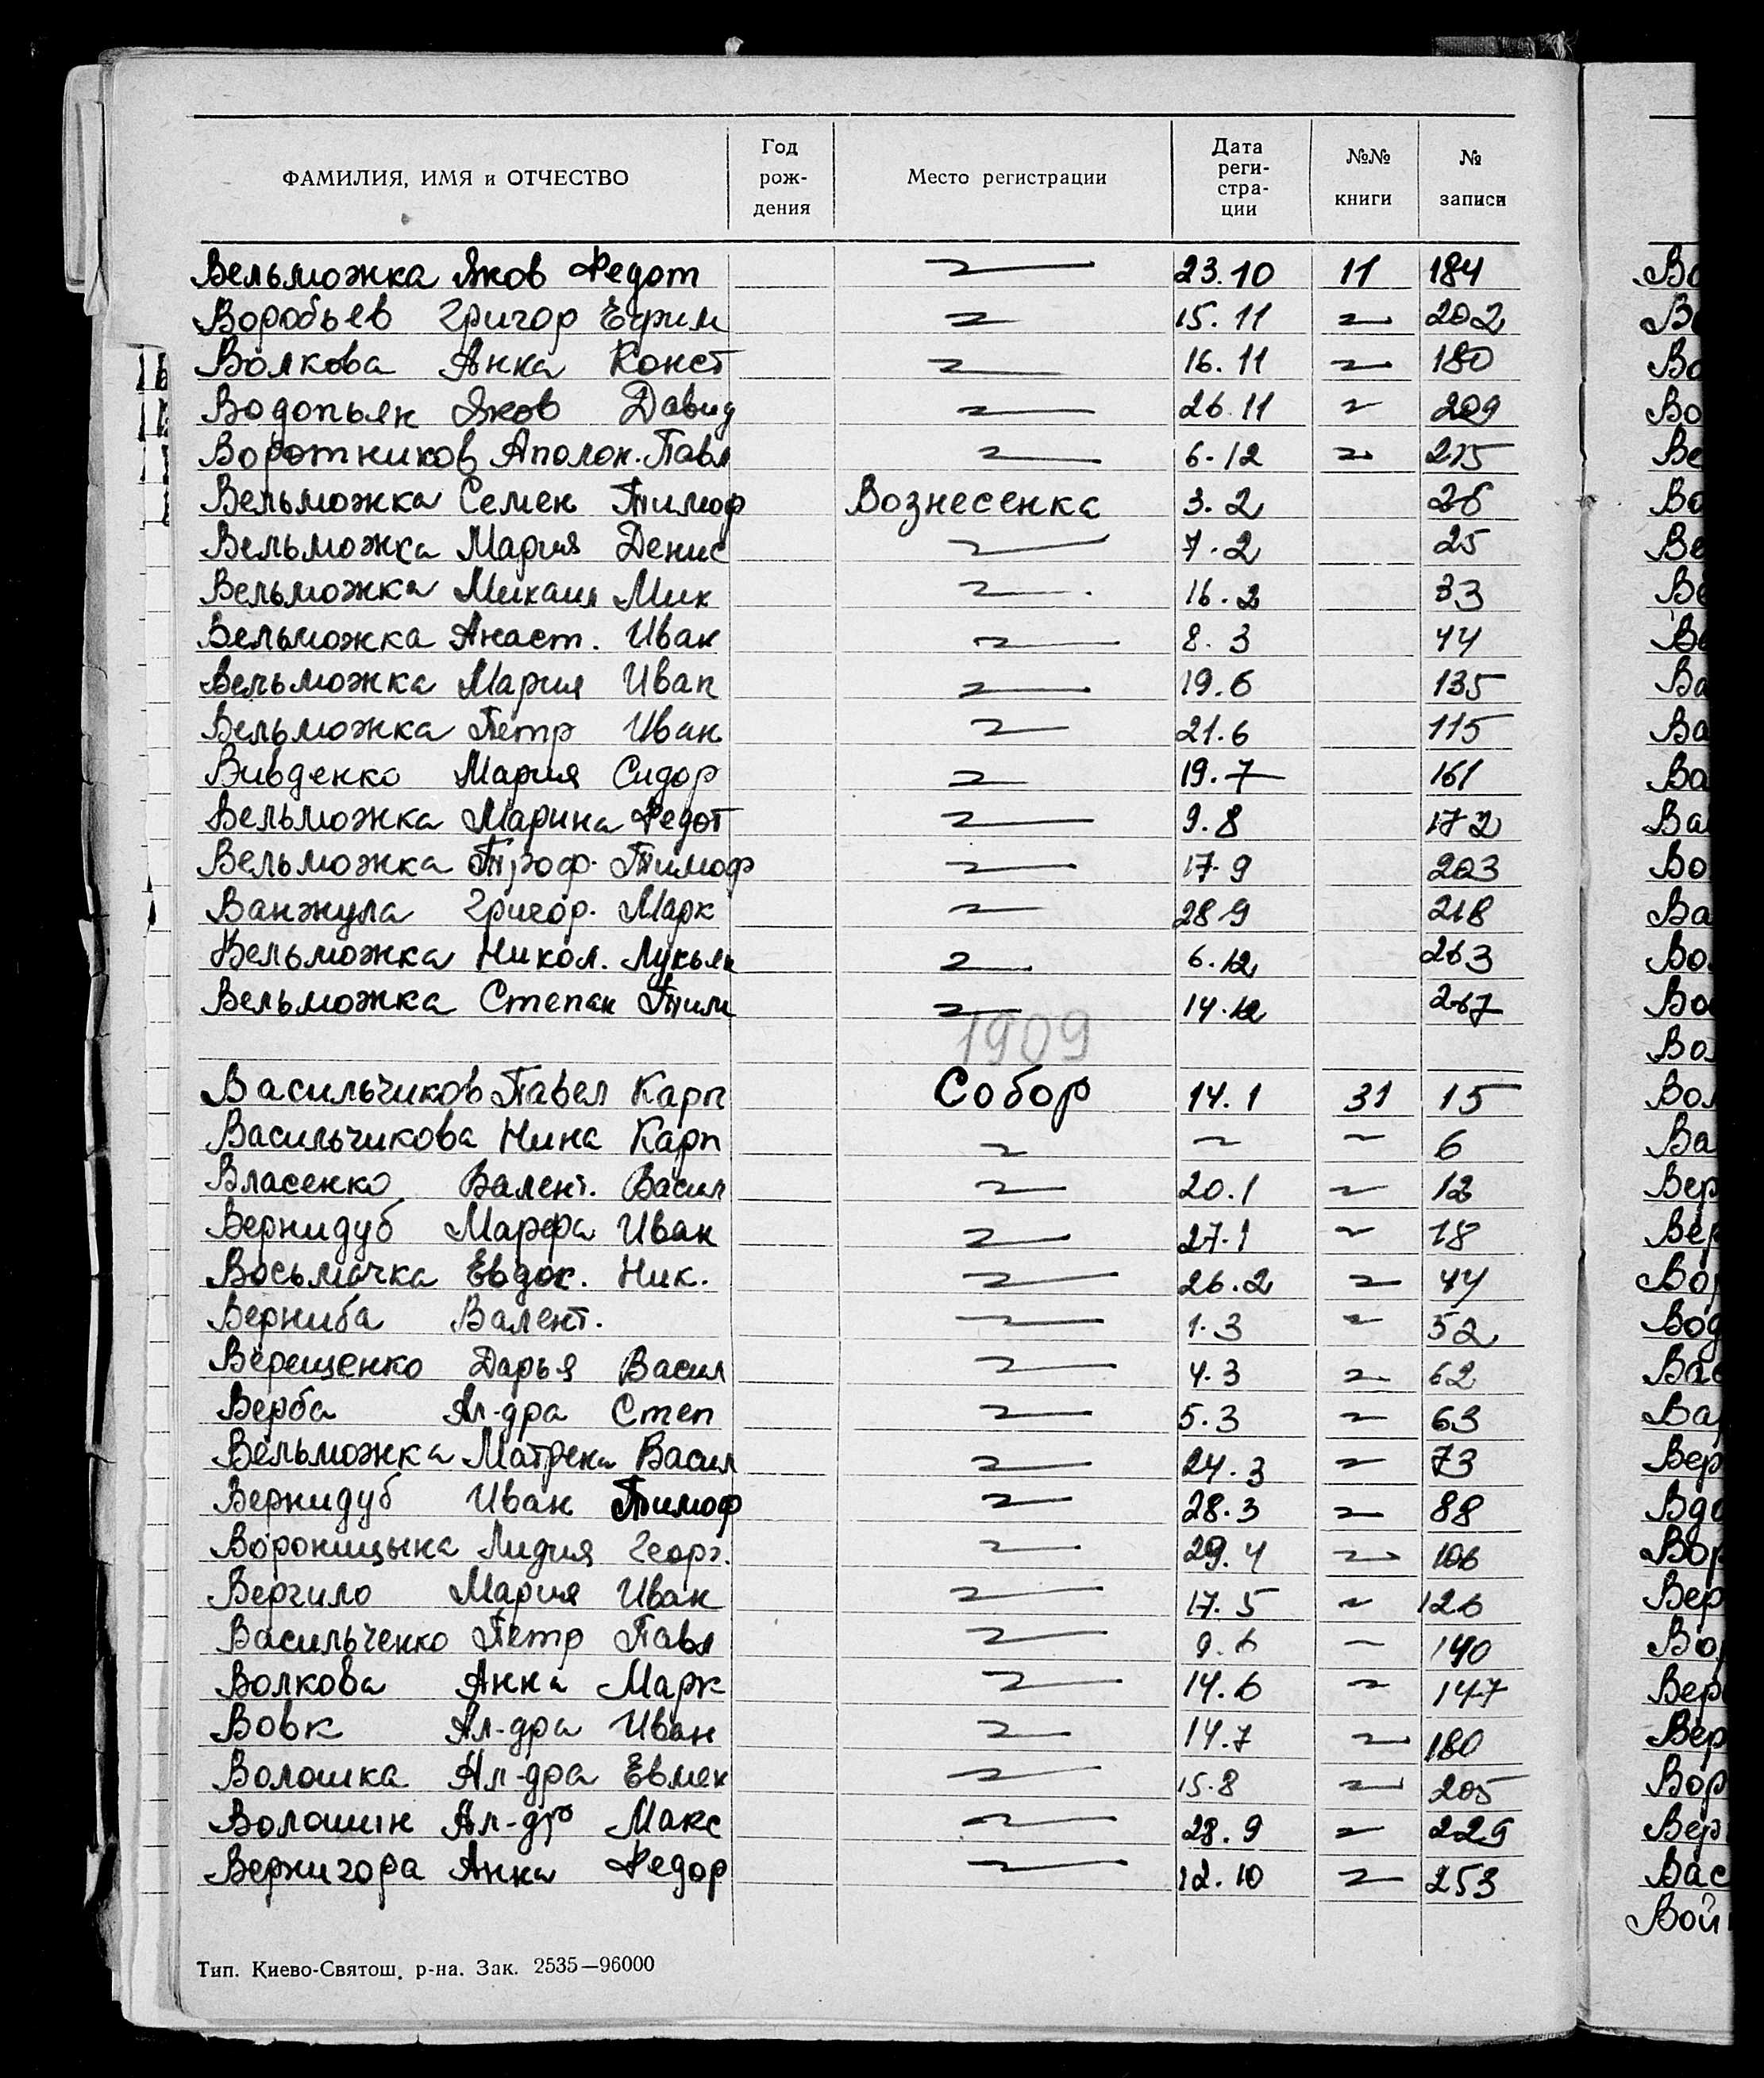 ФАМИЛИЯ, ИМЯ и ОТЧЕСТВО Год рождения Место регистрации Дата регистрации №№ книги № записи
Вельможка Яков Федот 〃 23.10 11 184
Воробьев Григор Ефрим 〃 15.11 〃 202
Волкова Анна Конст 〃 16.11 〃 180
Водопьян Яков Давид 〃 26.11 〃 209
Воротников Аполон. Павл 〃 6.12 〃 215
Вельможка Семен Тимоф Вознесенка 3.2 26
Вельможка Мария Денис 〃 7.2 25
Вельможка Михаил Мих 〃 16.2 33
Вельможка Анаст. Иван 〃 8.3 44
Вельможка Мария Иван 〃 19.6 135
Вельможка Петр Иван 〃 21.6 115
Вивденко Мария Сидор 〃 19.7 161
Вельможка Марина Федот 〃 9.8 172
Вельможка Троф. Тимоф 〃 17.9 203
Ванжула Григор. Марк 〃 28.9 218
Вельможка Никол. Лукьян 〃 6.12 263
Вельможка Степан Тим 〃 14.12 267
1909
Васильчиков Павел Карп Собор 14.1 31 15
Васильчикова Нина Карп 〃 〃 〃 6
Власенко Валент. Васил 〃 20.1 〃 12
Вернидуб Марфа Иван 〃 27.1 〃 18
Восьмачка Евдок. Ник. 〃 26.2 〃 44
Верниба Валент. 〃 1.3 〃 52
Верещенко Дарья Васил 〃 4.3 〃 62
Верба Ал-дра Степ 〃 5.3 〃 63
Вельможка Матрена Васил 〃 24.3 〃 73
Вернидуб Иван Тимоф 〃 28.3 〃 88
Вороницына Лидия Георг. 〃 29.4 〃 106
Вергило Мария Иван 〃 17.5 〃 126
Васильченко Петр Павл 〃 9.6 〃 140
Волкова Анна Марк 〃 14.6 〃 147
Вовк Ал-дра Иван 〃 14.7 〃 180
Волошка Ал-дра Евмен 〃 15.8 〃 205
Волошин Ал-др Макс 〃 28.9 〃 229
Вернигора Анна Федор 〃 12.10 〃 253
Тип. Киево-Святош. р-на. Зак. 2535—96000